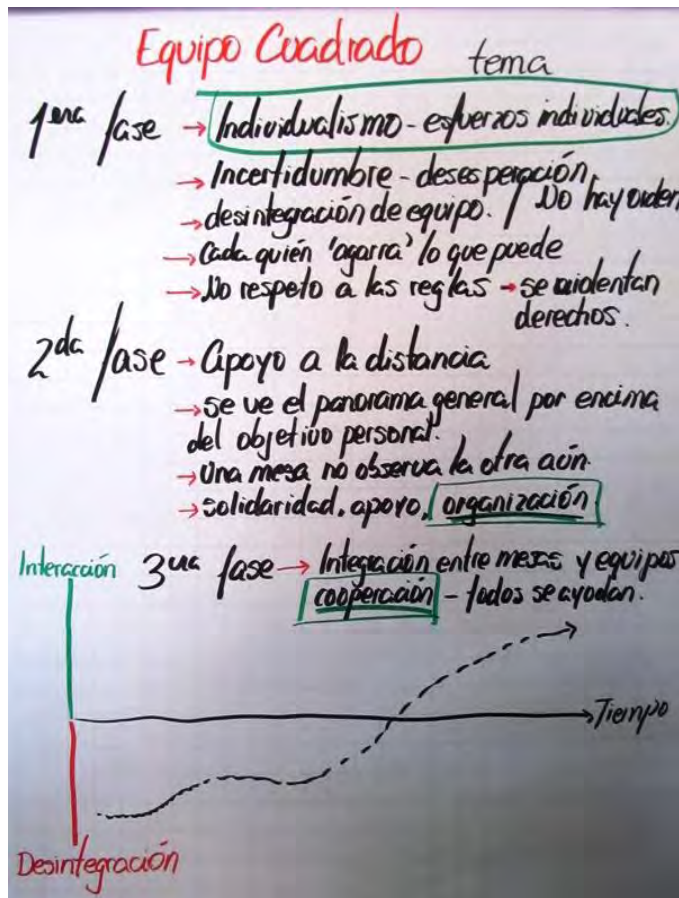 Equipo Cuadrado tema
1era fase → Individualismo - esfuerzos individuales.
→ Incertidumbre - desesperación
→ desintegración de equipo. / No hay orden
→ Cada quién 'agarra' lo que puede
→ No respeto a las reglas → se violentan
derechos.
2da fase → Apoyo a la distancia
→ se ve el panorama general por encima
del objetivo personal.
→ Una mesa no observa la otra aún.
→ solidaridad, apoyo, organización
Interacción 3ua fase → Integración entre mesas y equipos
cooperación - todos se ayudan.
Tiempo
Desintegración